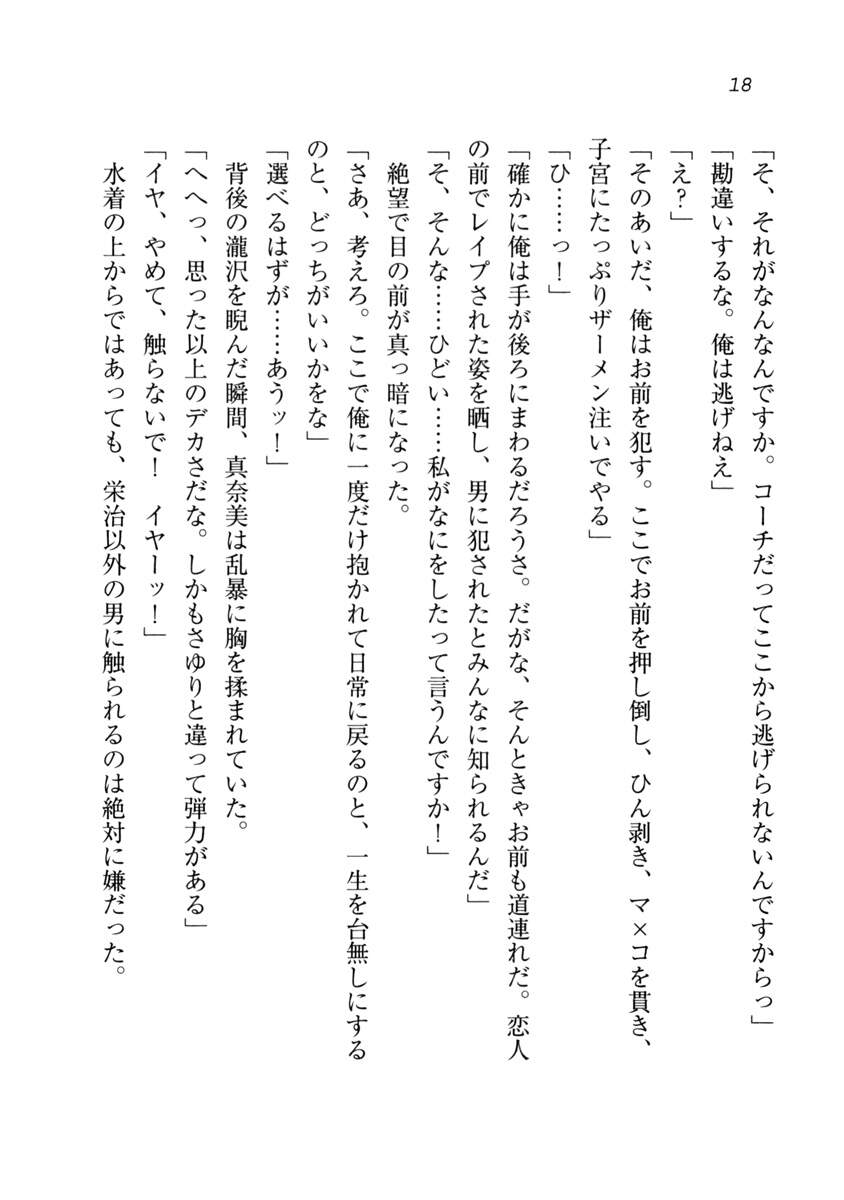 18
「そ、それがなんなんですか。コーチだってここから逃げられないんですからっ」
「勘違いするな。俺は逃げねえ」
「え?」
「そのあいだ、俺はお前を犯す。ここでお前を押し倒し、ひん剥き、マ×コを貫き、
子宮にたっぷりザーメン注いでやる」
「ひ……っ!」
「確かに俺は手が後ろにまわるだろうさ。だがな、そんときゃお前も道連れだ。恋人
の前でレイプされた姿を晒し、男に犯されたとみんなに知られるんだ」
「そ、そんな……ひどい……私がなにをしたって言うんですか!」
絶望で目の前が真っ暗になった。
「さあ、考えろ。ここで俺に一度だけ抱かれて日常に戻るのと、一生を台無しにする
のと、どっちがいいかをな」
「選べるはずが……あうッ!」
背後の瀧沢を睨んだ瞬間、真奈美は乱暴に胸を揉まれていた。
「へへっ、思った以上のデカさだな。しかもさゆりと違って弾力がある」
「イヤ、やめて、触らないで! イヤーッ!」
水着の上からではあっても、栄治以外の男に触られるのは絶対に嫌だった。